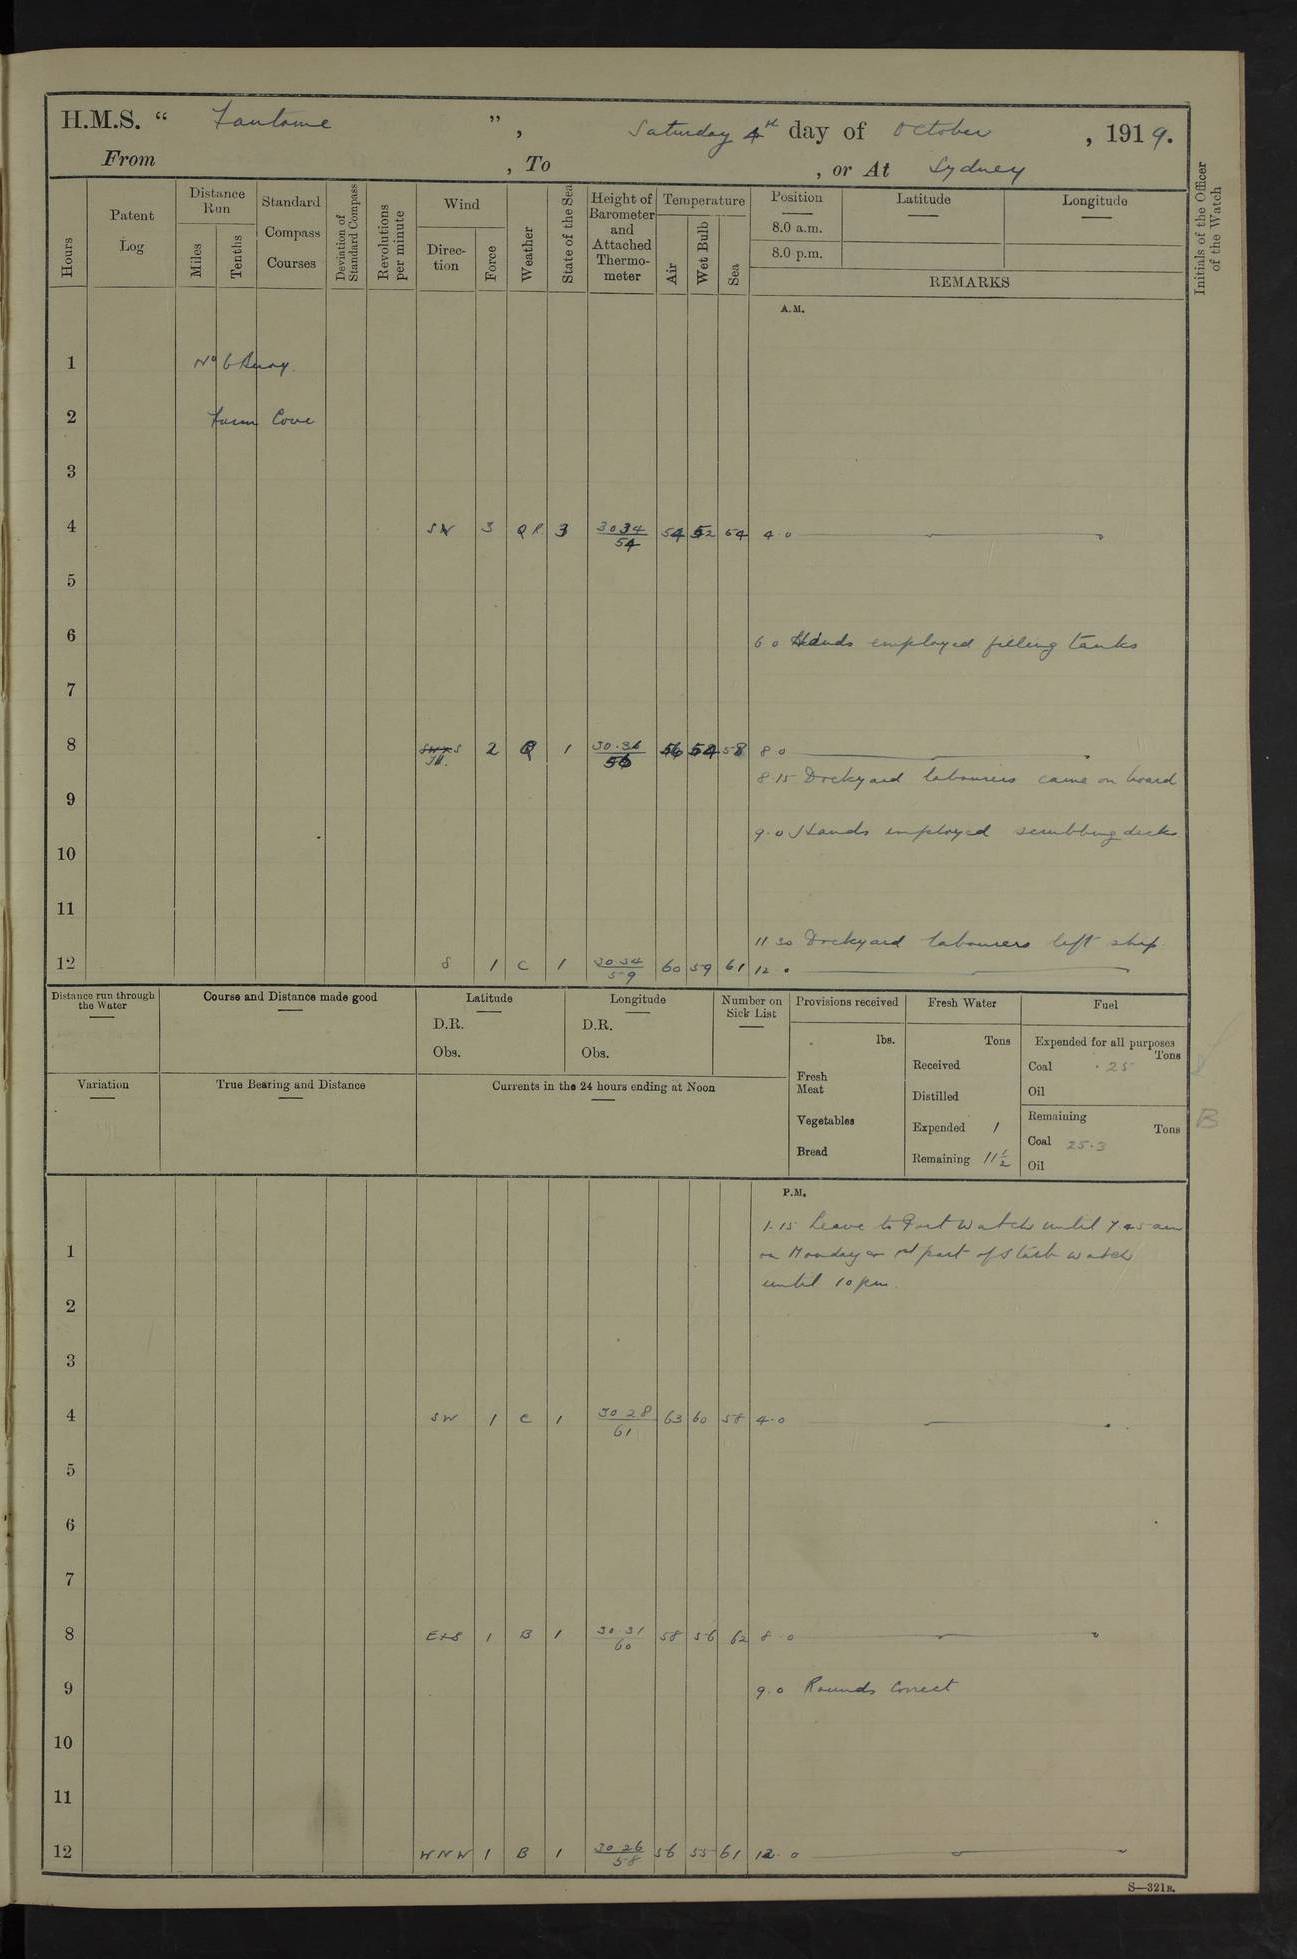 H.M.S. “ Fantome ” , Saturday 4th day of October , 1919.
From , To , or At Sydney
Hours
Patent Log
Distance Run
Miles
Tenths
Standard Compass Courses
Deviation of Standard Compass
Revolutions per minute
Wind
Direction
Force
Weather
State of the Sea
Height of Barometer and Attached Thermometer
Temperature
Air
Wet Bulb
Sea
Position
8.0 a.m.
8.0 p.m.
Latitude
Longitude
REMARKS
Initials of the Officer of the Watch
A.M.
1 No 6 Buoy
2 Farm Cove
3
4 SW 3 Q R 3 30 34 / 54 54 52 54 4 0
5
6 6 0 Hands employed filling tanks
7
8 2 Q 1 30.36 / 56 56 54 58 8 0
8.15 Dockyard labourers came on board
9
9.0 Hands employed scrubbing decks
10
11
11 30 Dockyard labourers left ship
12 S 1 C 1 30 34 / 59 60 59 61 12 0
Distance run through the Water
Course and Distance made good
Latitude
D.R.
Obs.
Longitude
D.R.
Obs.
Number on Sick List
Variation
True Bearing and Distance
Currents in the 24 hours ending at Noon
Provisions received
lbs.
Fresh Meat
Vegetables
Bread
Fresh Water
Tons
Received
Distilled
Expended 1
Remaining 11 1/2
Fuel
Expended for all purposes
Tons
Coal .25
Oil
Remaining
Tons
Coal 25.3
Oil
B
P.M.
1.15 Leave to Port Watch until 7 45 am
1 on Monday or 1st part of Starb watch
until 10 pm.
2
3
4 SW 1 C 1 30 28 / 61 63 60 58 4.0
5
6
7
8 ExS 1 B 1 30.31 / 60 58 56 62 8.0
9 9.0 Rounds Correct
10
11
12 WNW 1 B 1 30 26 / 58 56 55 61 12.0
S—321B.